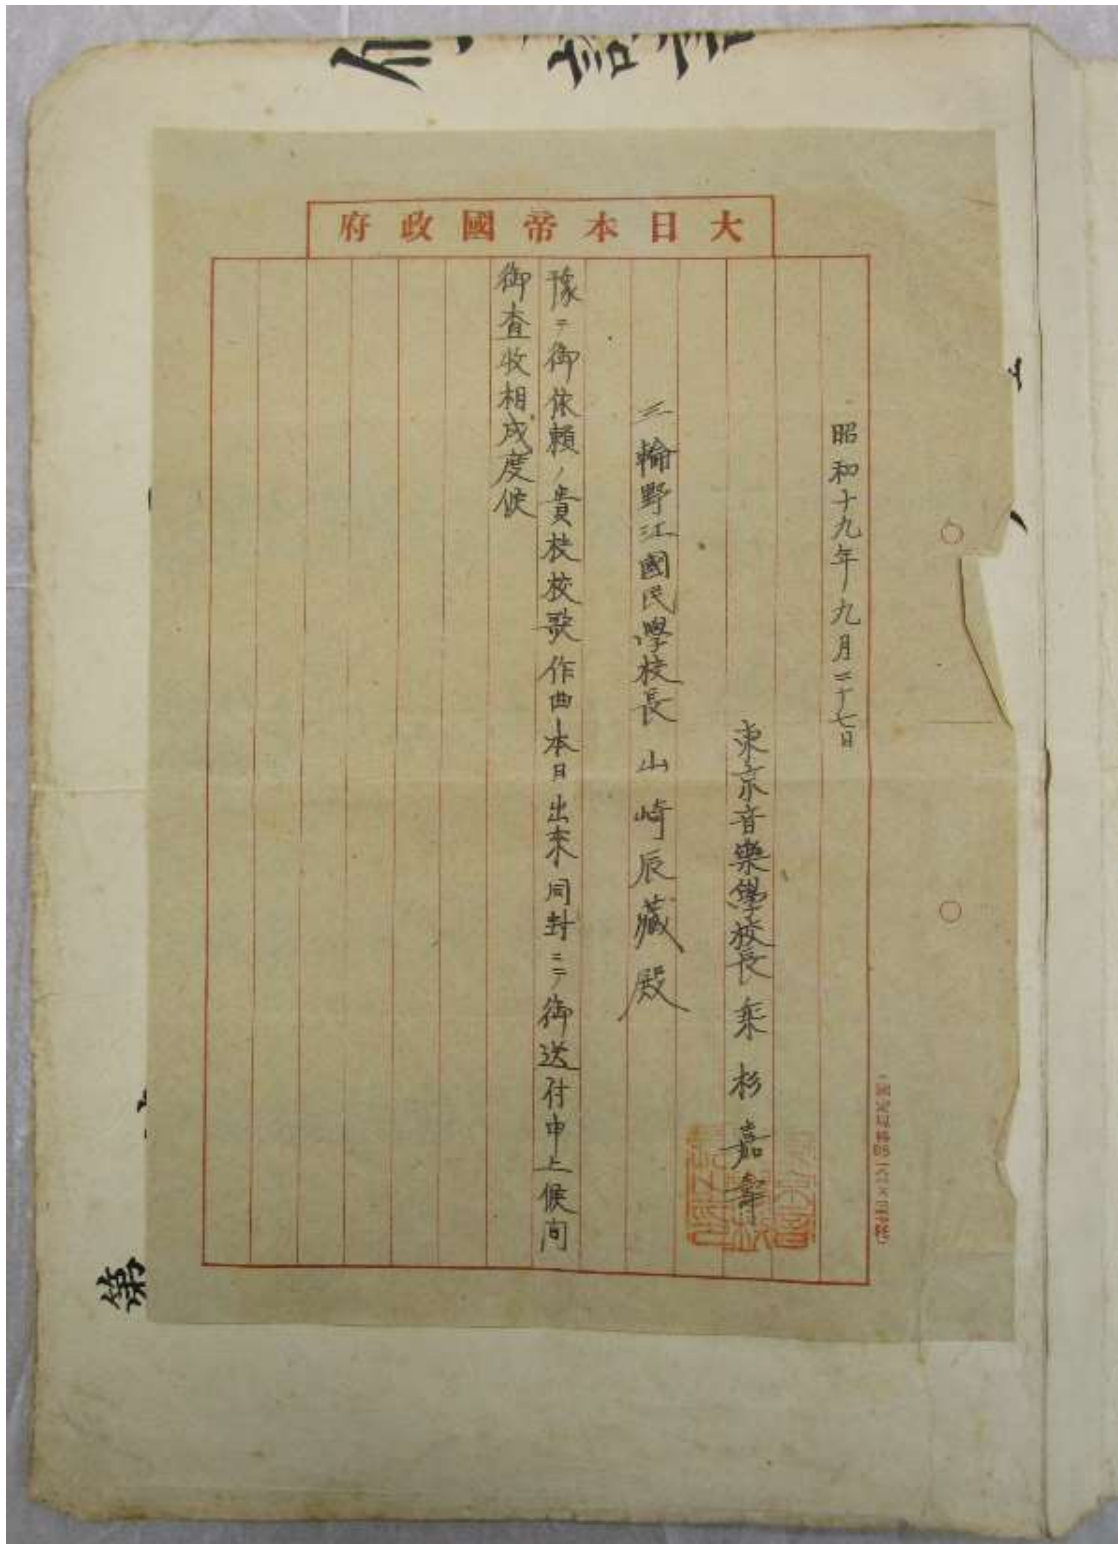 大日本帝國政府
昭和十九年九月二十七日
東京音樂學校長 乘杉嘉壽
三輪野江國民學校長 山崎辰藏殿
豫テ御依頼ノ貴校校歌作曲本日出來同封ニテ御送付申上候間
御査收相成度候
第